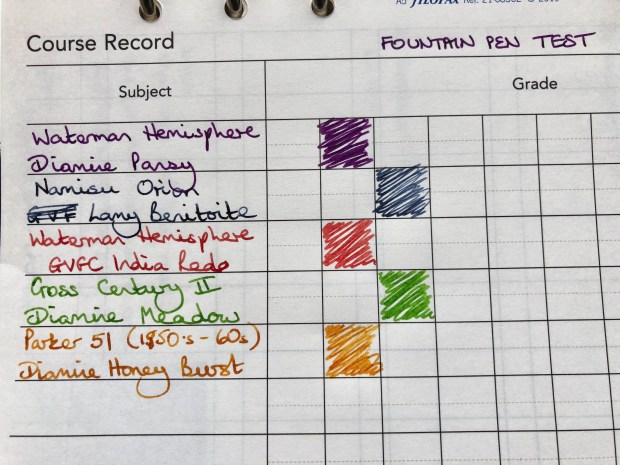 FILOFAX Ref.
Course Record
FOUNTAIN PEN TEST
Subject
Grade
Waterman Hemisphere
Diamine Pansy
Namisu Orion
Lamy Benitoite
Waterman Hemisphere
GVFC India Red
Cross Century II
Diamine Meadow
Parker 51 (1950's - 60s)
Diamine Honey Burst